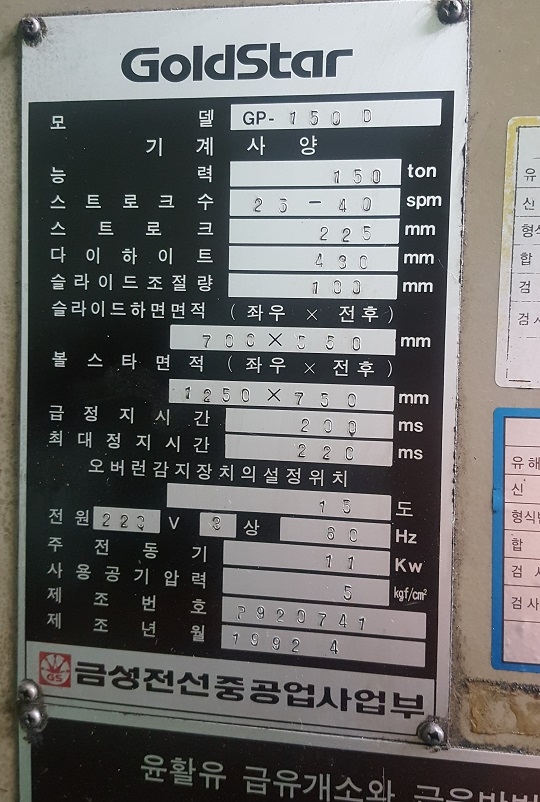 GoldStar
모 델 GP- 150 D
기 계 사 양
능 력 150 ton
스트로크수 25-40 spm
스 트 로 크 225 mm
다이하이트 430 mm
슬라이드조절량 100 mm
슬라이드하면면적 (좌우 × 전후)
700×550 mm
볼스타면적 (좌우 × 전후)
1250×750 mm
급정지시간 200 ms
최대정지시간 220 ms
오버런감지장치의설정위치
15 도
전원 220 V 3 상 60 Hz
주 전 동 기 11 Kw
사용공기압력 5 kgf/cm²
제 조 번 호 P920741
제 조 년 월 1992 4
GS 금성전선중공업사업부
윤활유 급유개소와
유
신
형식
합
검
검사
유해
신
형식번
합
검 사
검사